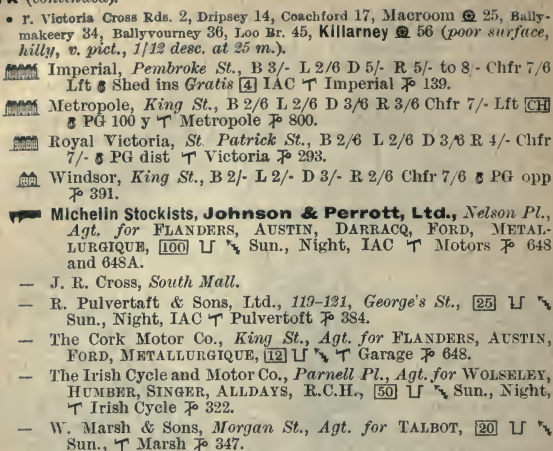 • r. Victoria Cross Rds. 2, Dripsey 14, Coachford 17, Macroom 25, Bally-
makeery 34, Ballyvourney 36, Loo Br. 45, Killarney 56 (poor surface,
hilly, v. pict., 1/12 desc. at 25 m.).
Imperial, Pembroke St., B 3/- L 2/6 D 5/- R 5/- to 8/- Chfr 7/6
Lft Shed ins Gratis 4 IAC Imperial 139.
Metropole, King St., B 2/6 L 2/6 D 3/6 R 3/6 Chfr 7/- Lft CH
PG 100 y Metropole 800.
Royal Victoria, St. Patrick St., B 2/6 L 2/6 D 3/6 R 4/- Chfr
7/- PG dist Victoria 293.
Windsor, King St., B 2/- L 2/- D 3/- R 2/6 Chfr 7/6 PG opp
391.
Michelin Stockists, Johnson & Perrott, Ltd., Nelson Pl.,
Agt. for FLANDERS, AUSTIN, DARRACQ, FORD, METAL-
LURGIQUE, 100 Sun., Night, IAC Motors 648
and 648A.
— J. R. Cross, South Mall.
— R. Pulvertaft & Sons, Ltd., 119-121, George's St., 25
Sun., Night, IAC Pulvertoft 384.
— The Cork Motor Co., King St., Agt. for FLANDERS, AUSTIN,
FORD, METALLURGIQUE, 12 Garage 648.
— The Irish Cycle and Motor Co., Parnell Pl., Agt. for WOLSELEY,
HUMBER, SINGER, ALLDAYS, R.C.H., 50 Sun., Night,
Irish Cycle 322.
— W. Marsh & Sons, Morgan St., Agt. for TALBOT, 20
Sun., Marsh 347.